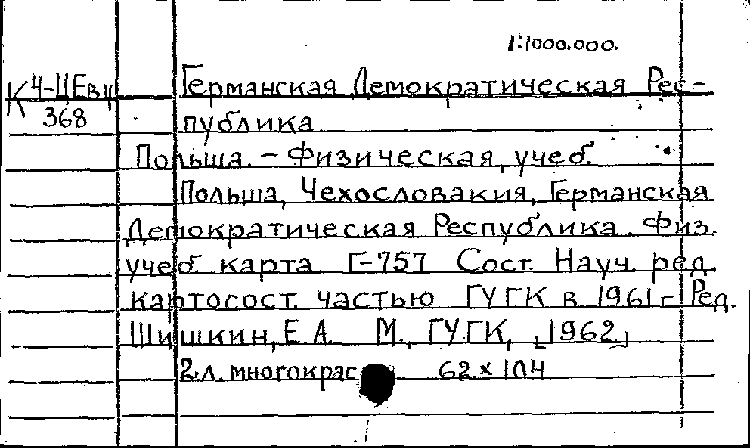 1:1000.000.
К 4-ЦЕв4 Германская Демократическая Рес-
368 публика
Польша. - Физическая, учеб.
Польша, Чехословакия, Германская
Демократическая Республика. Физ.
учеб. карта Г-757 Сост. Науч. ред.
картосост. частью ГУГК в 1961 г. Ред.
Шишкин, Е.А. М., ГУГК, [1962]
2 л. многокрас 62 x 104